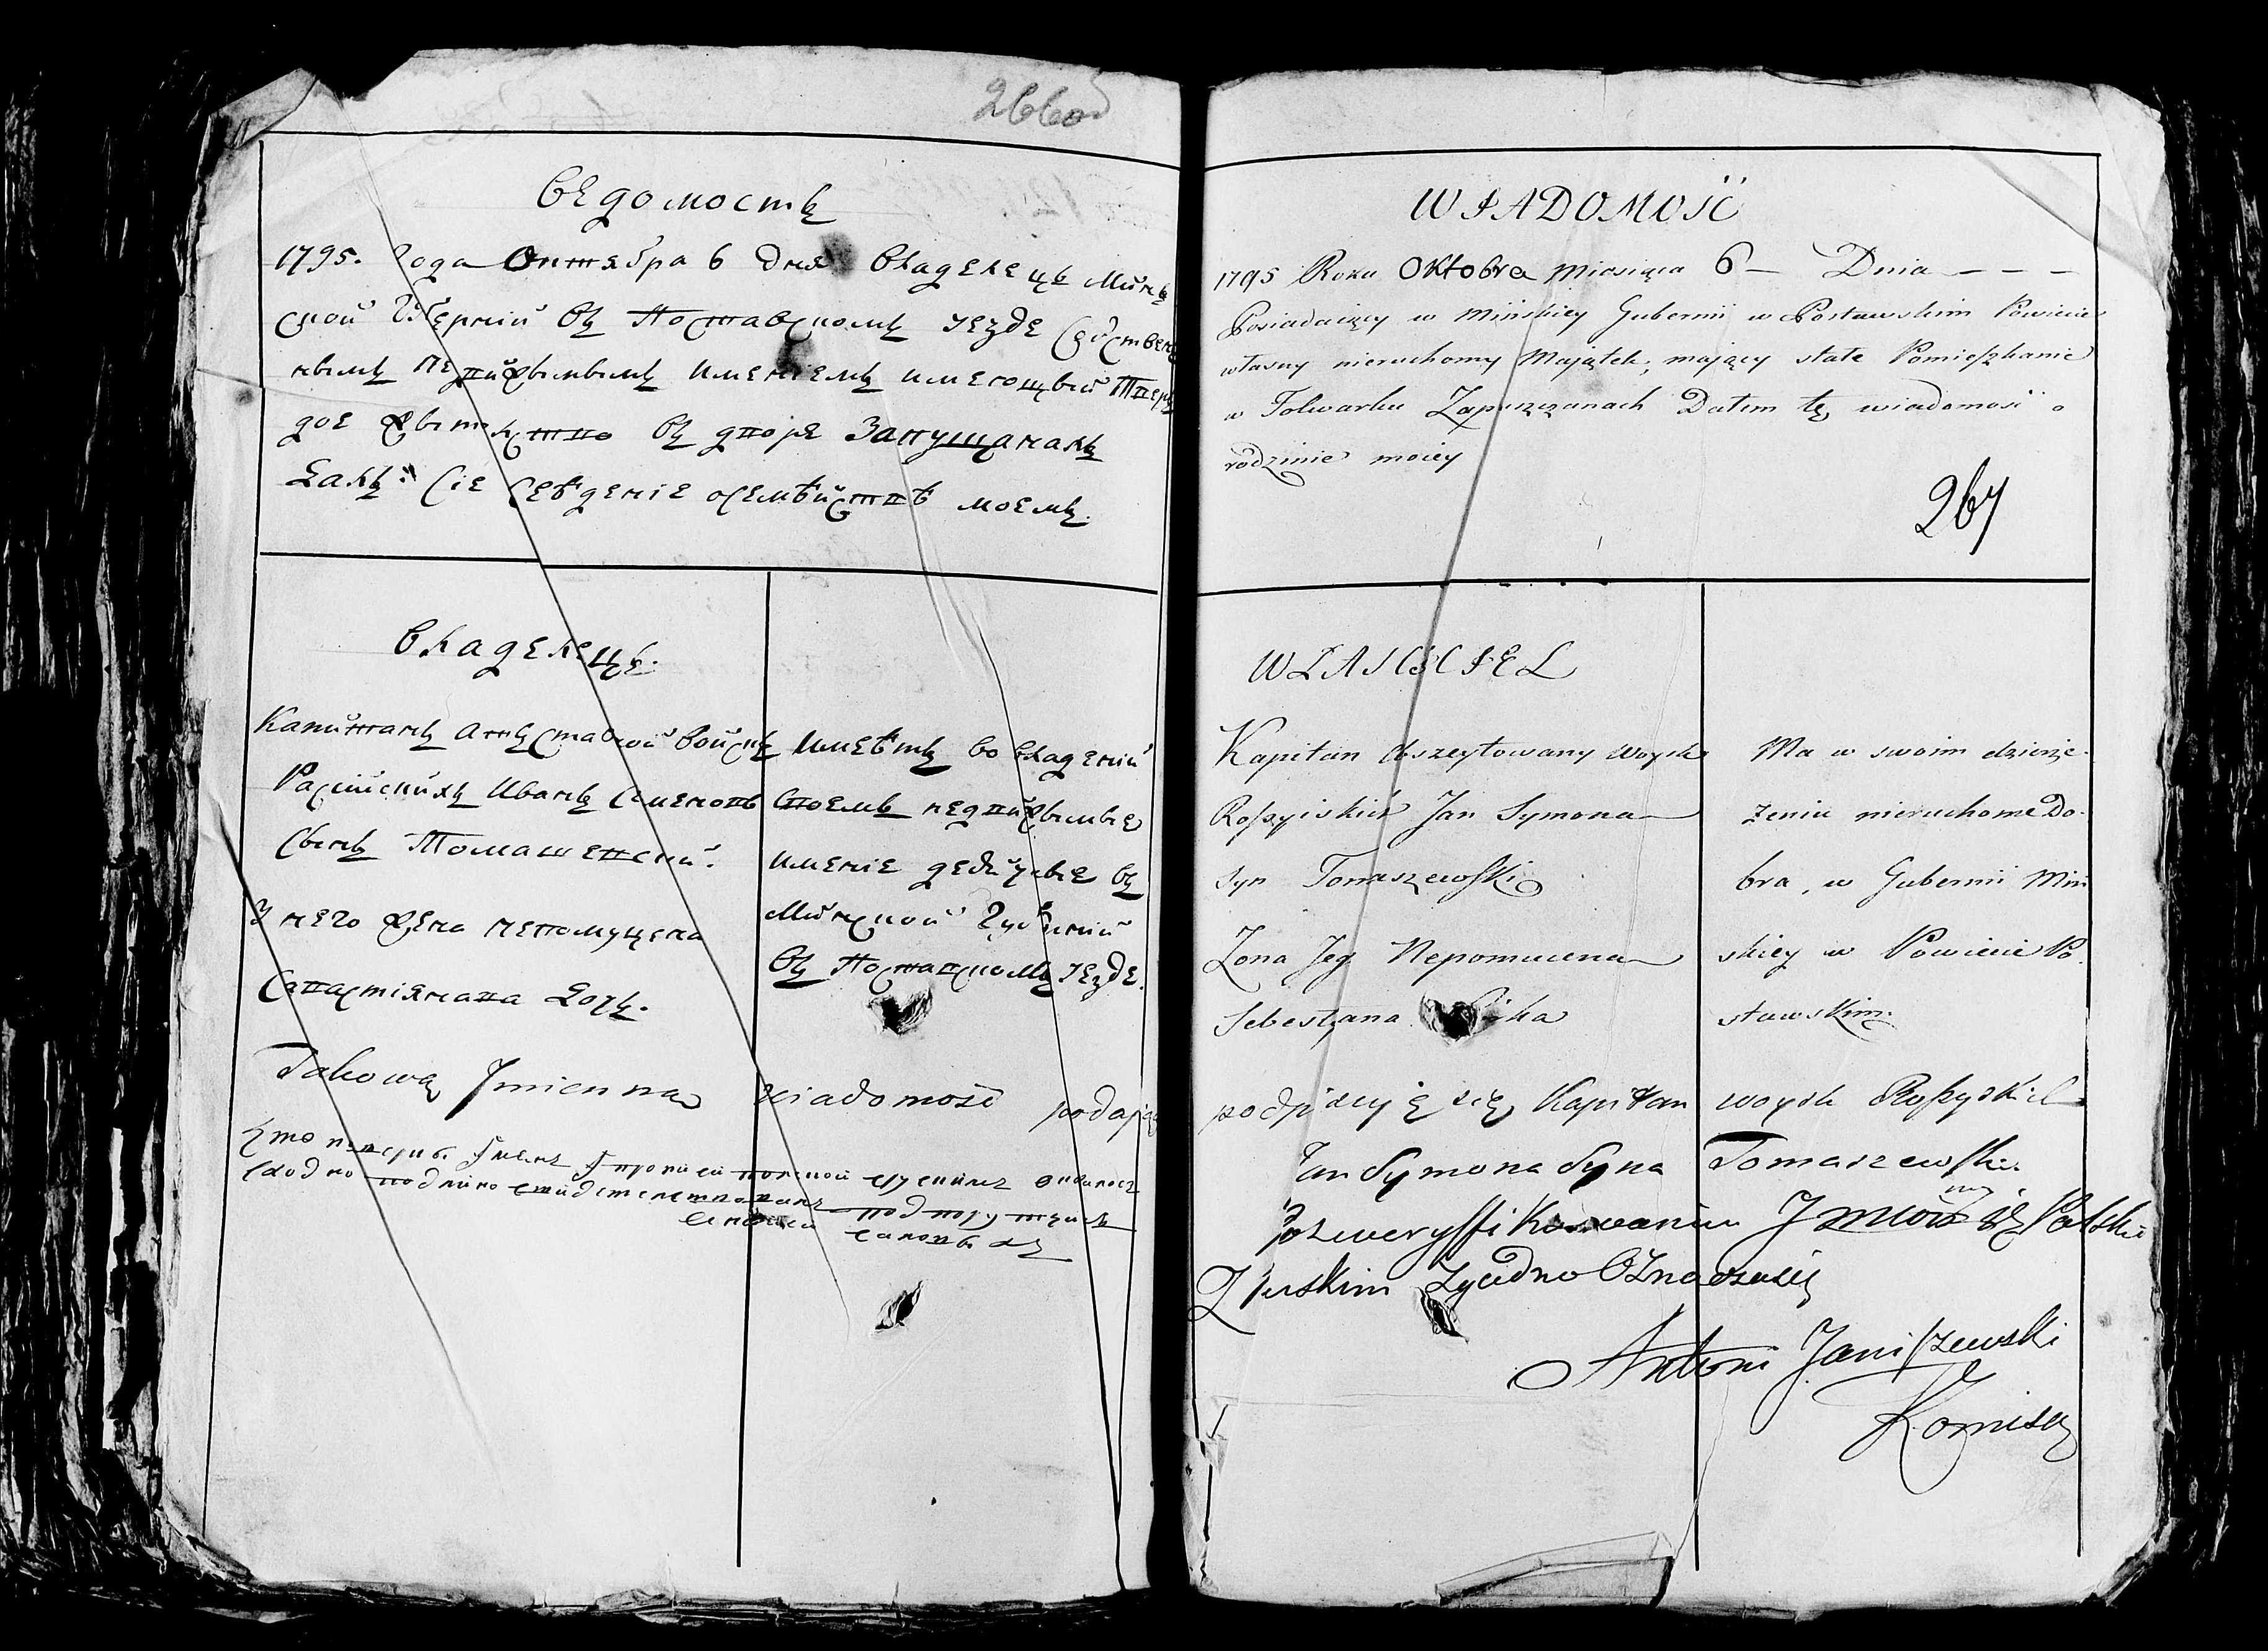 266об
Ведомость
1795. Года Октября 6 дня Владелецъ Минъ
ской Губерній въ Поставскомъ уезде собствен
нымъ недвижымымъ именіемъ имеющый твер
дое жытельство въ дворе Запущанахъ
Далъ: сіе сведеніе осемействе моемъ.
Владелецъ.
Капитанъ атъставной войскъ
Расийскихъ Иванъ Сименовъ
сынъ Томашевский.
У него жена Непомуцена
Сапастіянава дочъ.
Имеетъ во владеній
своемъ недвижымые
именіе дедичные въ
Минской Губерній
въ Поставскомъ уезде.
Takową Jmienną wiadomość podając
сходно подлино свидетелствовалъ
WIADOMOŚĆ
1795 Roku Oktobra Miesiąca 6 – Dnia – – –
Posiadaiący w Mińskiey Gubernii w Postawskim Powiecie
własny nieruchomy Majątek, mający stałe Pomieszkanie
w Folwarku Zapuszczanach Dałem tę wiadomość o
rodzinie moiey
267
WŁAŚCICIEL
Kapitan Abszeytowany woysk
Roszyiskich Jan Symona
syn Tomaszewski
Zona Jeg Nepomucena
Sebestyana
Ma w swoim dzierże-
zeniu nieruchome Do-
bra, w Gubernii Miń
skiey w Powiecie Po-
stawskim.
podpisuję się Kapitan woysk Roszyskich
Jan Symona Syna Tomaszewski
Po zweryffikowaniu Jmion z Polski
Z ruskim zgodno Oznaczasię
Antoni Janiszewski
Komisarz